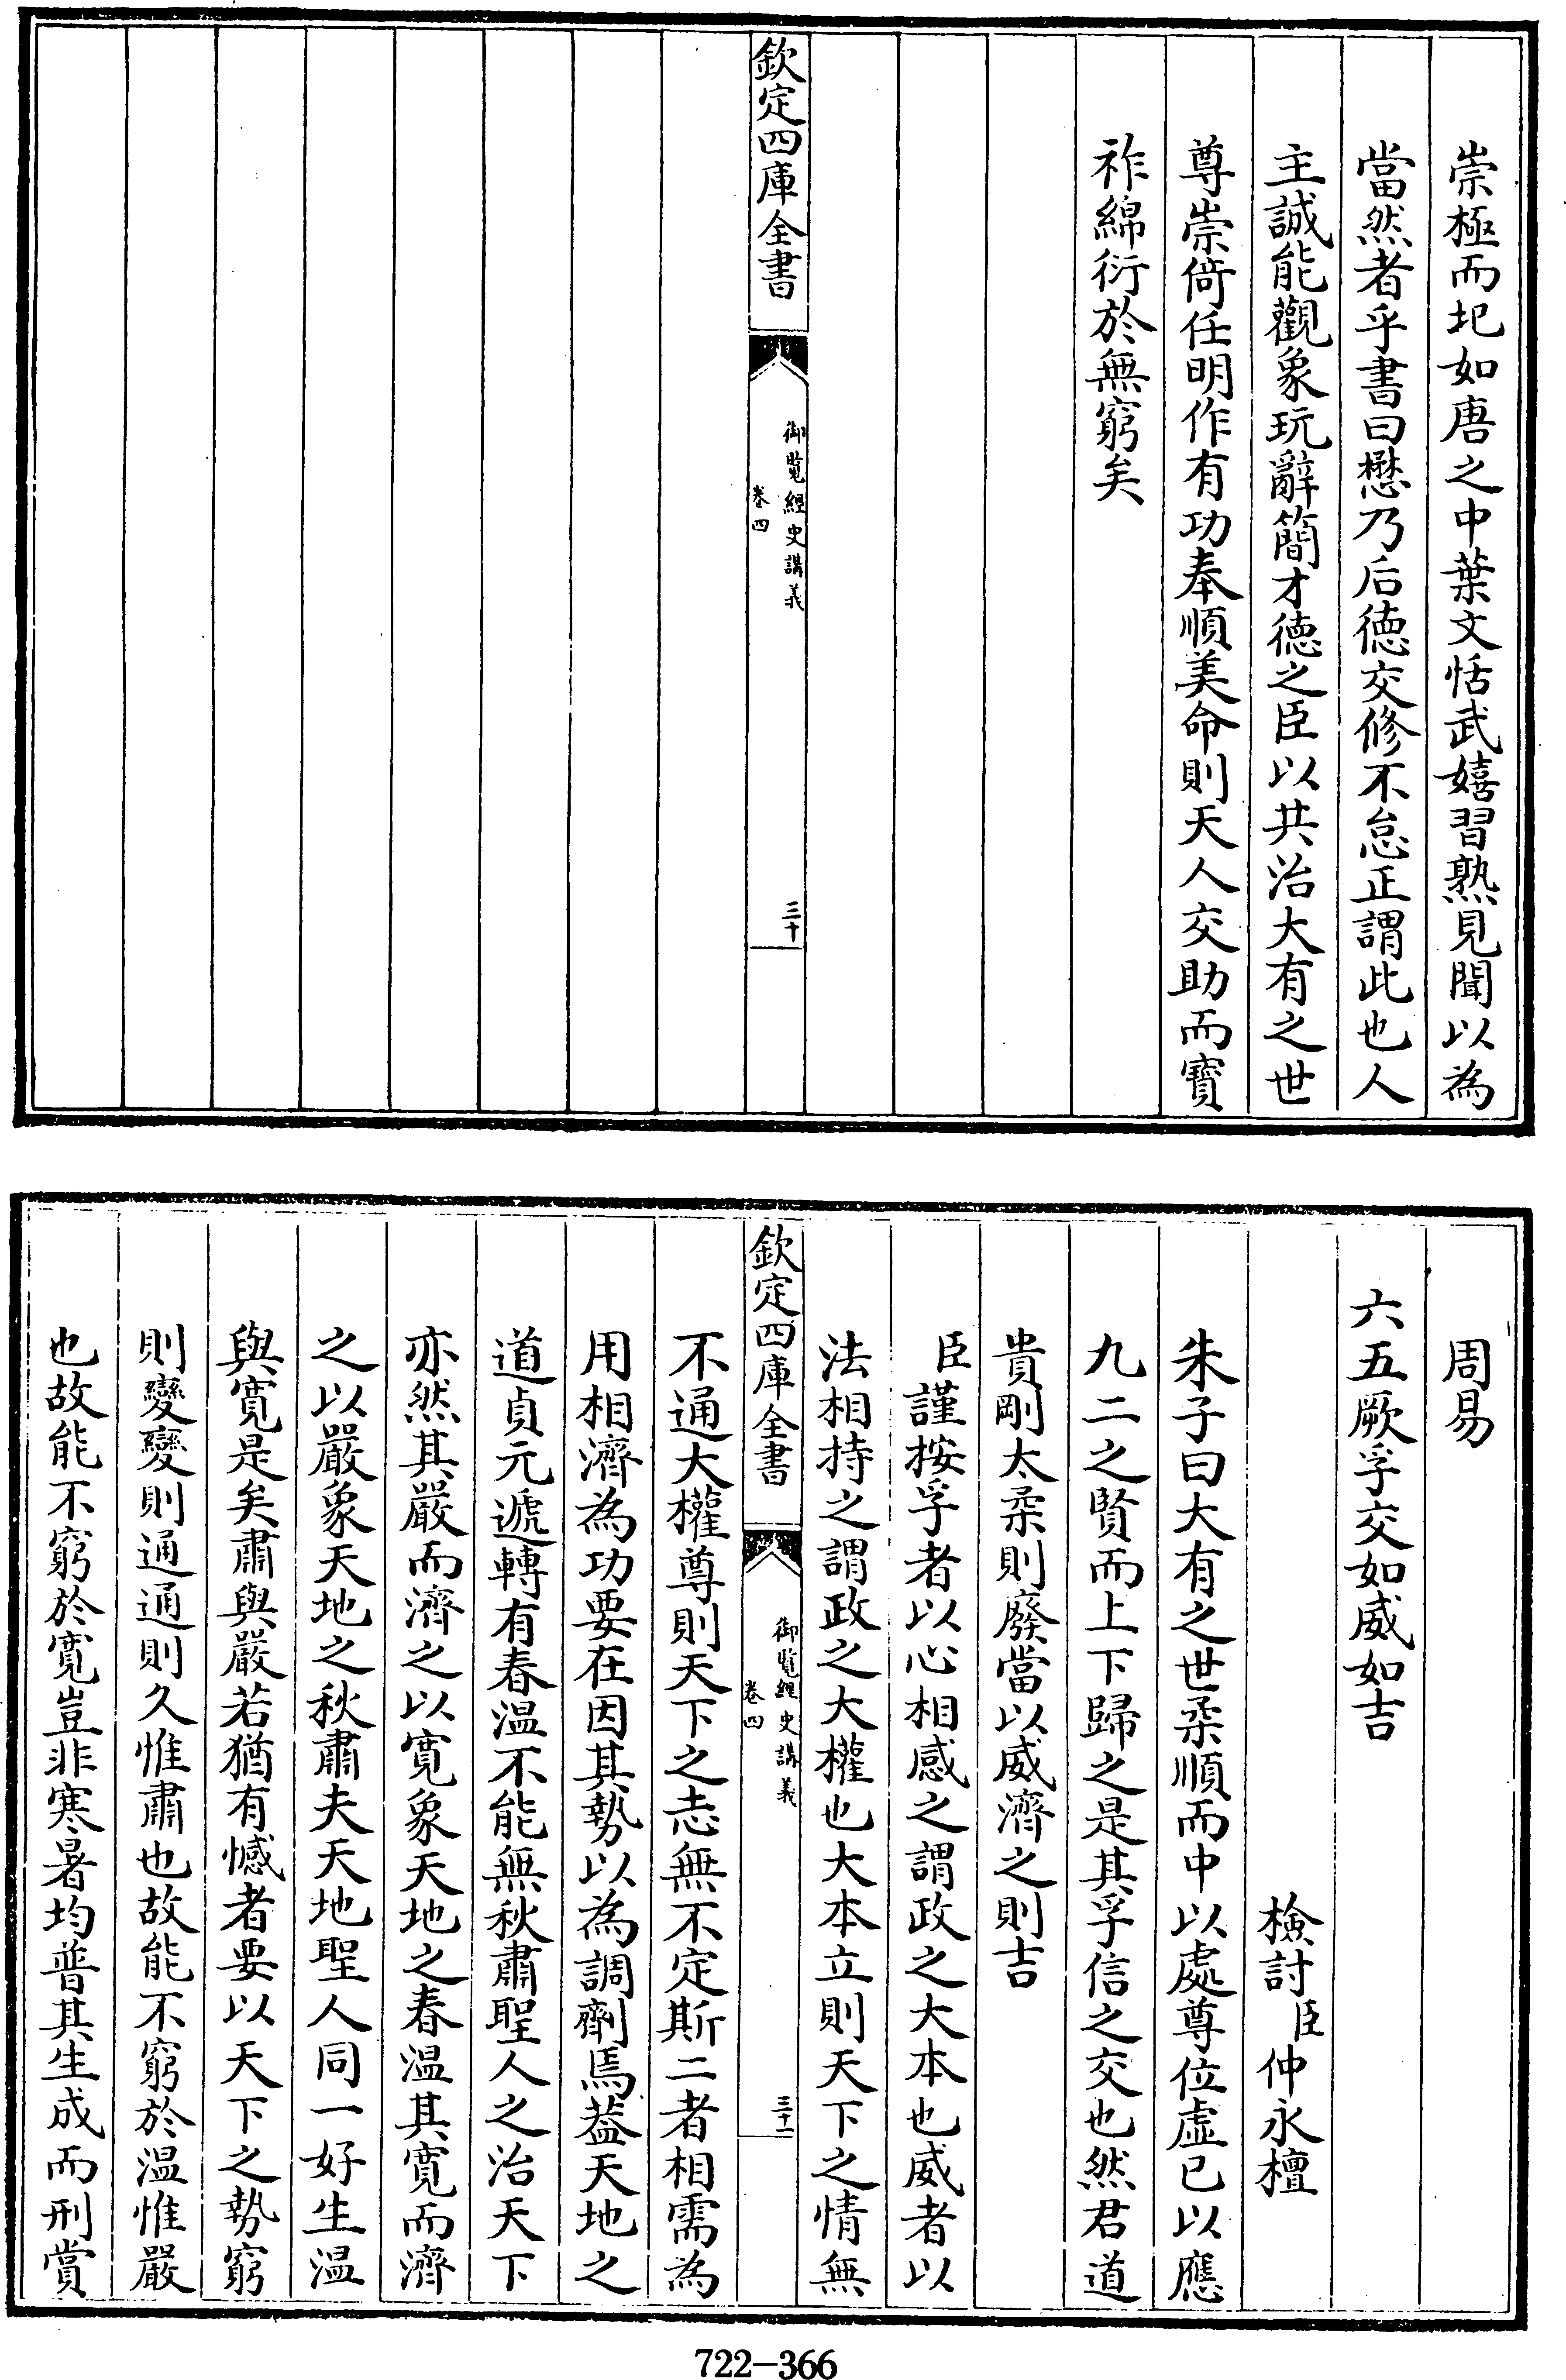 崇極而圮如唐之中葉文恬武嬉習熟見聞以為
當然者乎書曰懋乃后德交修不怠正謂此也人
主誠能觀象玩辭簡才德之臣以共治大有之世
尊崇倚任明作有功奉順美命則天人交助而寳
祚綿衍於無窮矣
欽定四庫全書
御覽經史講義
卷四
三十
周易
六五厥孚交如威如吉
檢討臣仲永檀
朱子曰大有之世柔順而中以處尊位虚已以應
九二之賢而上下歸之是其孚信之交也然君道
貴剛太柔則廢當以威濟之則吉
臣謹按孚者以心相感之謂政之大本也威者以
法相持之謂政之大權也大本立則天下之情無
欽定四庫全書
御覽經史講義
卷四
三十一
不通大權尊則天下之志無不定斯二者相需為
用相濟為功要在因其勢以為調劑焉葢天地之
道貞元遞轉有春温不能無秋肅聖人之治天下
亦然其嚴而濟之以寛象天地之春温其寛而濟
之以嚴象天地之秋肅夫天地聖人同一好生温
與寛是矣肅與嚴若猶有憾者要以天下之勢窮
則變變則通通則久惟肅也故能不窮於温惟嚴
也故能不窮於寛豈非寒暑均普其生成而刑賞
722-366